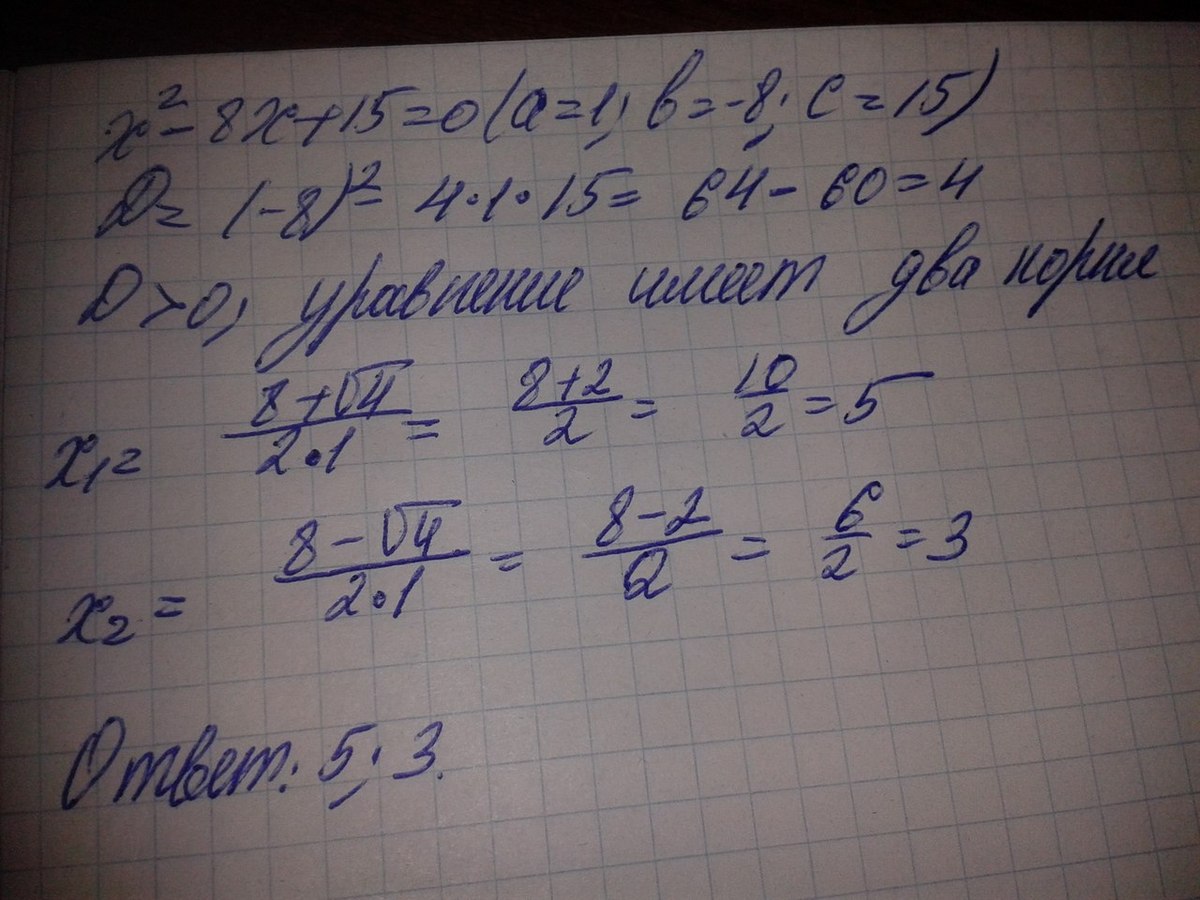 x² - 8x + 15 = 0 (a = 1; b = -8; c = 15)
D = (-8)² - 4·1·15 = 64 - 60 = 4
D > 0, уравнение имеет два корня
x₁ = (8+√4)/(2·1) = (8+2)/2 = 10/2 = 5
x₂ = (8-√4)/(2·1) = (8-2)/2 = 6/2 = 3
Ответ: 5; 3.